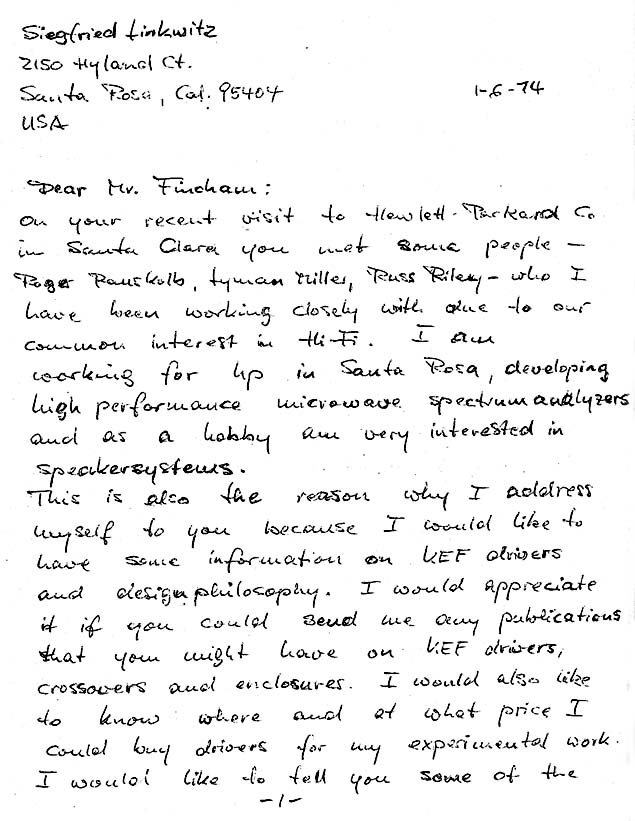 Siegfried Linkwitz
2150 Hyland Ct.
Santa Rosa, Cal. 95404
1-6-74
USA
Dear Mr. Fincham:
On your recent visit to Hewlett-Packard Co
in Santa Clara you met some people —
Roger Rauskolb, Lyman Miller, Russ Riley — who I
have been working closely with due to our
common interest in Hi-Fi. I am
working for hp in Santa Rosa, developing
high performance microwave spectrum analyzers
and as a hobby am very interested in
speakersystems.
This is also the reason why I address
myself to you because I would like to
have some information on KEF drivers
and designphilosophy. I would appreciate
it if you could send me any publications
that you might have on KEF drivers,
crossovers and enclosures. I would also like
to know where and at what price I
could buy drivers for my experimental work.
I would like to tell you some of the
-1-